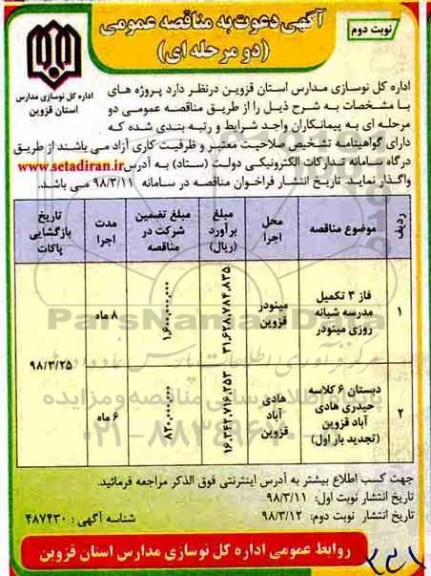 نوبت دوم
آگهی دعوت به مناقصه عمومی
(دو مرحله ای)
اداره کل نوسازی مدارس
استان قزوین
اداره کل نوسازی مدارس استان قزوین درنظر دارد پروژه های
با مشخصات به شرح ذیل را از طریق مناقصه عمومی دو
مرحله ای به پیمانکاران واجد شرایط و رتبه بندی شده که
دارای گواهینامه تشخیص صلاحیت معتبر و ظرفیت کاری آزاد می باشند از طریق
درگاه سامانه تدارکات الکترونیکی دولت (ستاد) به آدرس www.setadiran.ir
واگذار نماید. تاریخ انتشار فراخوان مناقصه در سامانه ۹۸/۳/۱۱ می باشد.
ردیف
موضوع مناقصه
محل
اجرا
مبلغ
برآورد
(ریال)
مبلغ تضمین
شرکت در
مناقصه
مدت
اجرا
تاریخ
بازگشایی
پاکات
۱
فاز ۳ تکمیل
مدرسه شبانه
روزی مینودر
مینودر
قزوین
۳۱,۶۲۸,۷۸۴,۸۳۵
۱,۶۰۰,۰۰۰,۰۰۰
۸ ماه
۹۸/۳/۲۵
۲
دبستان ۶ کلاسه
حیدری هادی
آباد قزوین
(تجدید بار اول)
هادی
آباد
قزوین
۱۶,۳۴۲,۷۱۶,۲۵۳
۸۲۰,۰۰۰,۰۰۰
۶ ماه
ParsNamadData
۰۲۱-۸۸۳۴۹۶۷۰
جهت کسب اطلاع بیشتر به آدرس اینترنتی فوق الذکر مراجعه فرمائید.
تاریخ انتشار نوبت اول: ۹۸/۳/۱۱
تاریخ انتشار نوبت دوم: ۹۸/۳/۱۲
شناسه آگهی: ۴۸۷۴۳۰
روابط عمومی اداره کل نوسازی مدارس استان قزوین